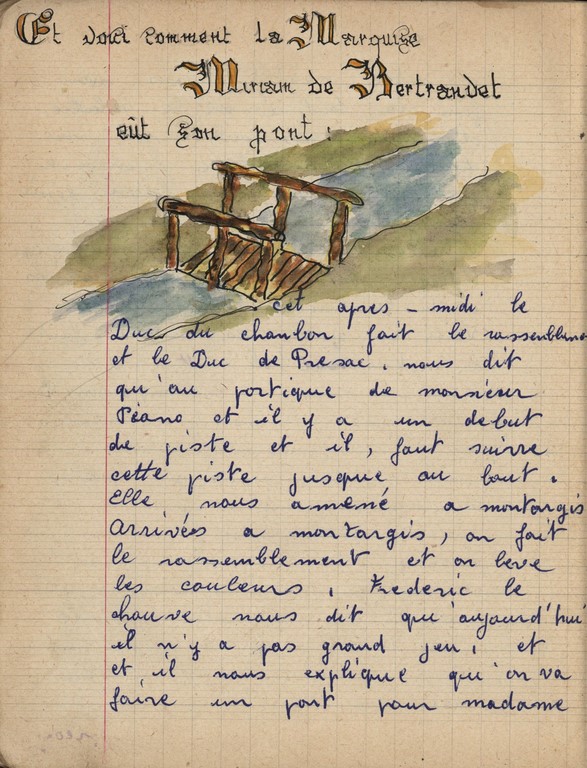 Et voici comment la Marquise
Miriam de Bertrandet
eût son pont :
cet apres-midi le
Duc du chanbon fait le rassemblement
et le Duc de Presac, nous dit
qu'au portique de monsieur
Piano et il y a un debut
de piste et il, faut suivre
cette piste jusque au bout.
Elle nous amené a montargis
Arrivés a montargis, on fait
le rassemblement et on leve
les couleurs, Frederic le
chauve nous dit qu'aujourd'hui
il n'y a pas grand jeu, et
et il nous explique qu'on va
faire un pont pour madame